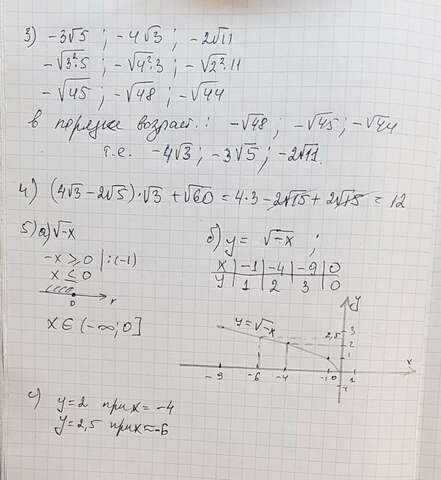 3) -3√5 ; -4√3 ; -2√11
-√3²·5 ; -√4²·3 ; -√2²·11
-√45 ; -√48 ; -√44
в порядке возраст.: -√48 ; -√45 ; -√44
т.е. -4√3 ; -3√5 ; -2√11.
4) (4√3-2√5)·√3 +√60 = 4·3 - 2√15 + 2√15 = 12
5) а) √-x
-x ≥ 0 | :(-1)
x ≤ 0
0
x ∈ (-∞; 0]
б) y = √-x ;
x | -1 | -4 | -9 | 0
y | 1 | 2 | 3 | 0
y
y=√-x
2,5
3
2
1
x
-9 -6 -4 -1 0 1
с) y=2 при x= -4
y=2,5 при x≈-6